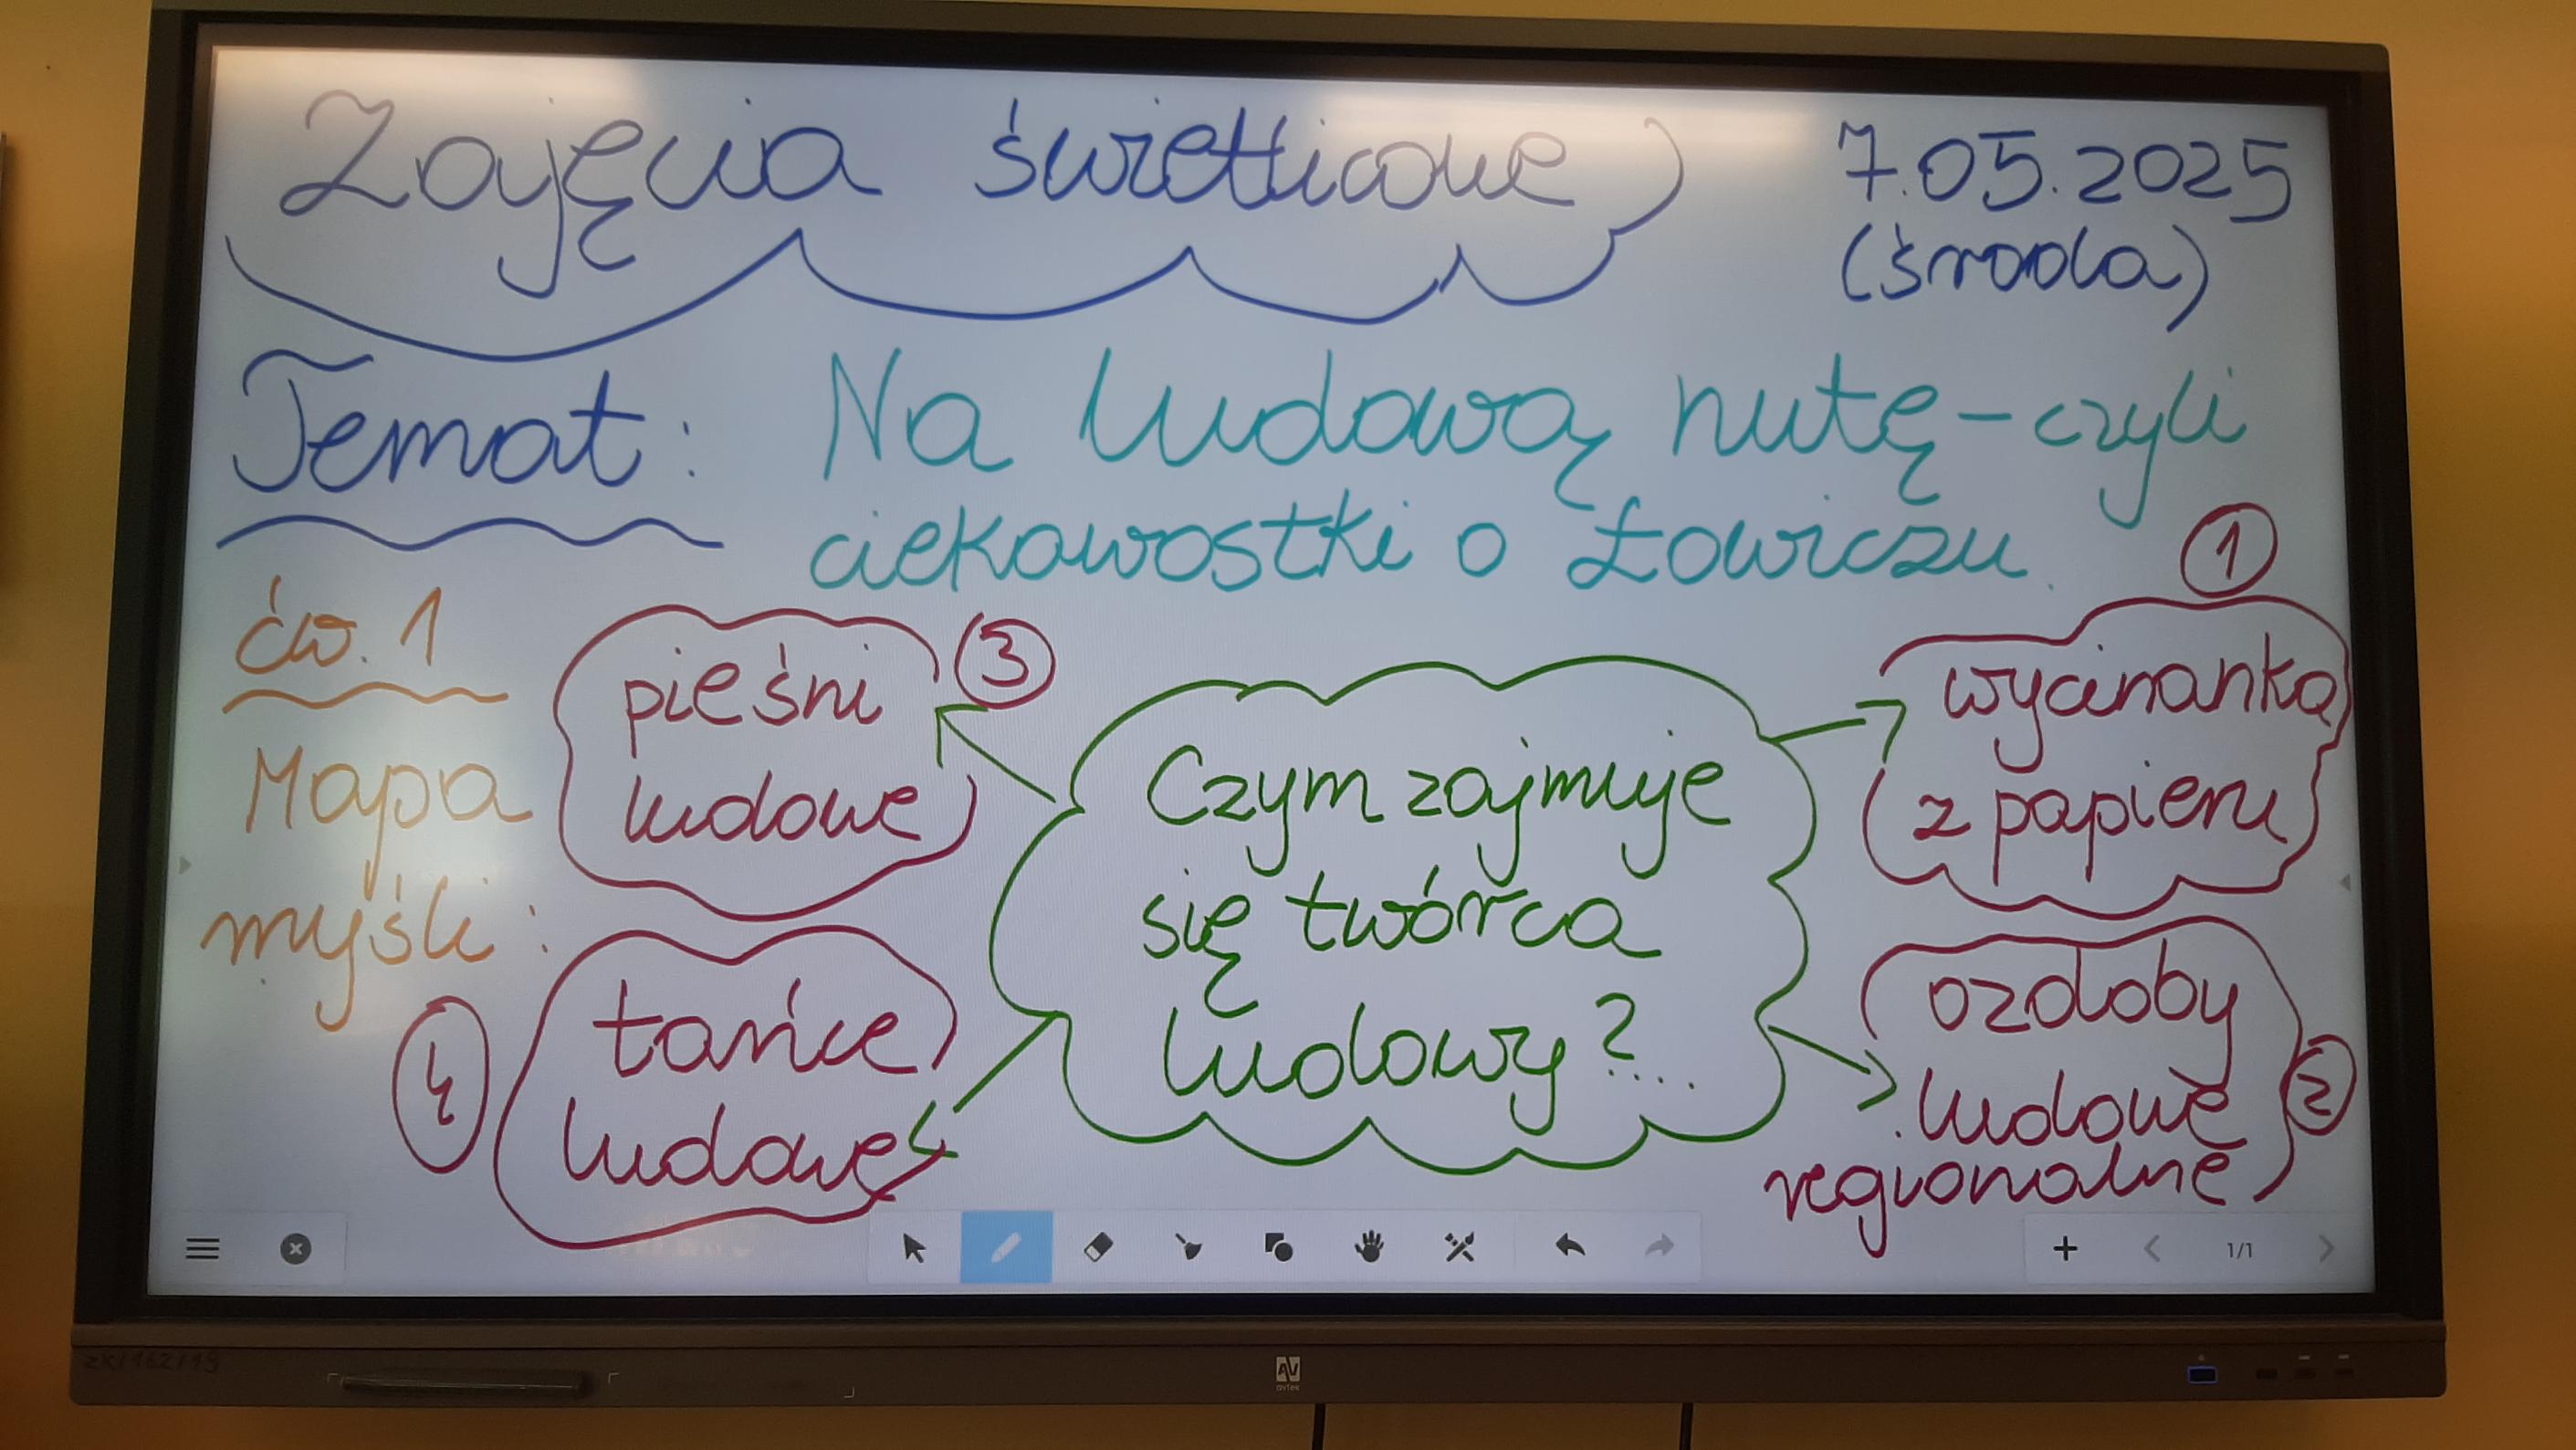 Zajęcia świetlicowe
7.05.2025
(środa)
Temat: Na ludową nutę - czyli
ciekawostki o Łowiczu.
ćw. 1
Mapa
myśli:
Czym zajmuje
się twórca
ludowy?....
1
wycinanka
z papieru
ozdoby
ludowe
regionalne
2
3
pieśni
ludowe
4
tańce
ludowe
1/1
AV
avtek